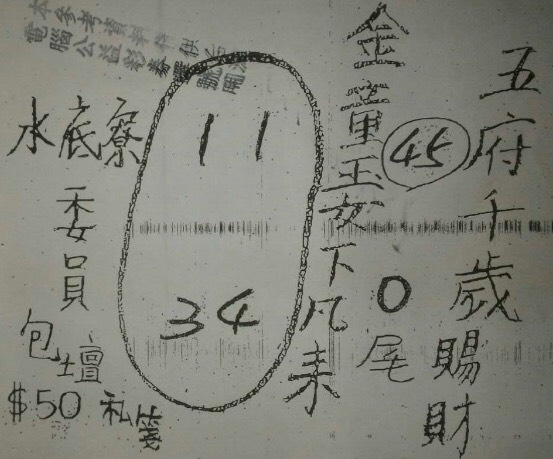 五府千歲賜財
45
0尾
金童玉女下凡来
11
34
水底寮
委員
包壇
$50 私箋
本參考資料
電腦公益彩券